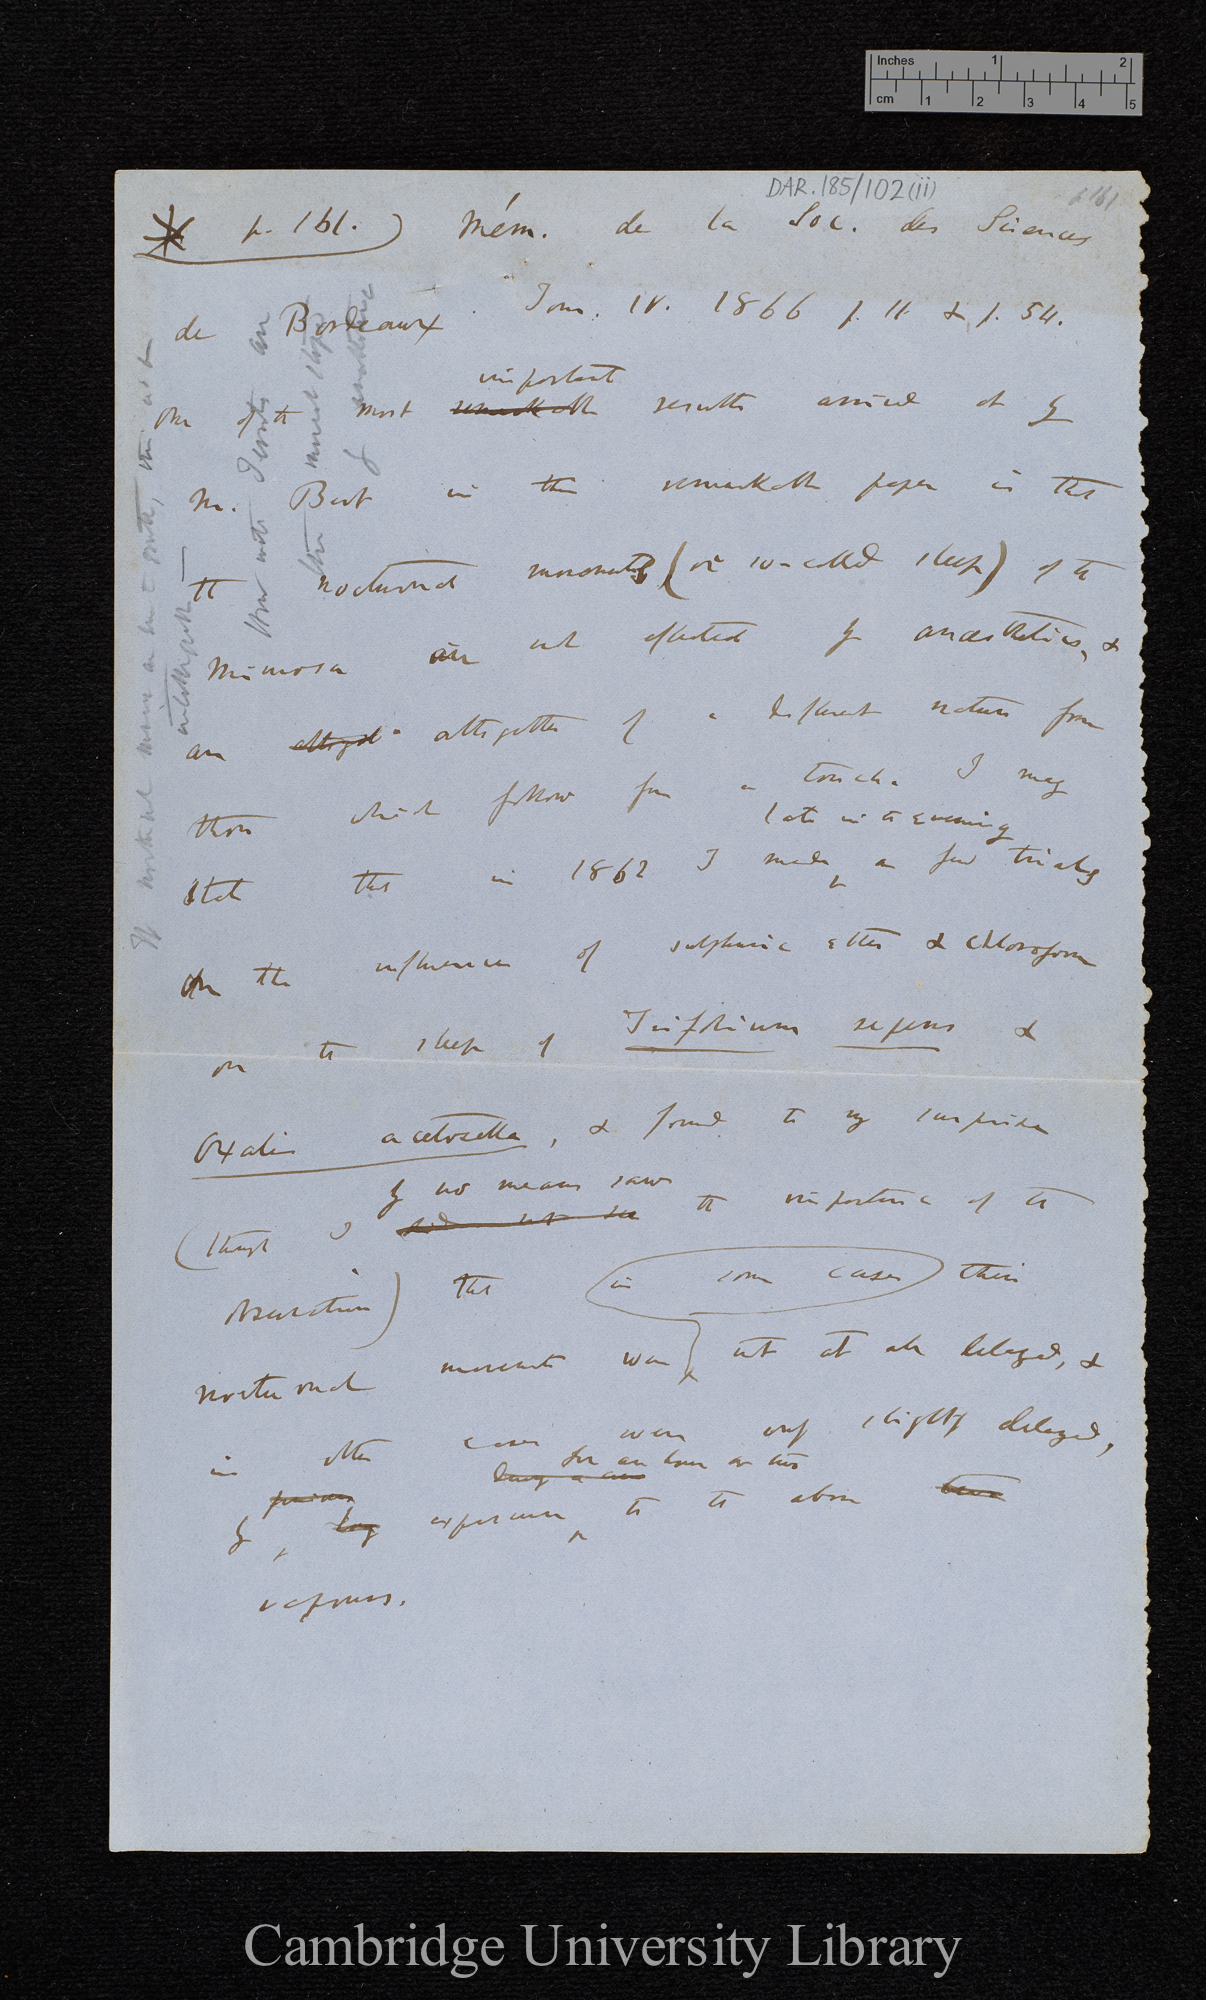 Inches 1 2
cm 1 2 3 4 5
DAR.185/102(ii)
p 161
* p. 161.) Mém. de la Soc. des Sciences
de Bordeaux Tom. IV. 1866 p. 11 & p. 54.
important
One of the most remarkable results arrived at by
Mr. Bert in this remarkable paper is that
the nocturnal movements (or so-called sleep) of the
Mimosa are not affected by anæsthetics, &
are altogether of a different nature from
those which follow from a touch. I may
late in the evening
state that in 1862 I made a few trials
on the influence of sulphuric ether & chloroform
on the sleep of Trifolium repens &
Oxalis acetosella, & found to my surprise
by no means saw
(though I did not see the importance of the
observation) that in some cases their
nocturnal movements were not at all delayed, &
in other cases were only slightly delayed,
for an hour or two
by long exposure to the above
vapours.
If nocturnal means
how with
Cambridge University Library